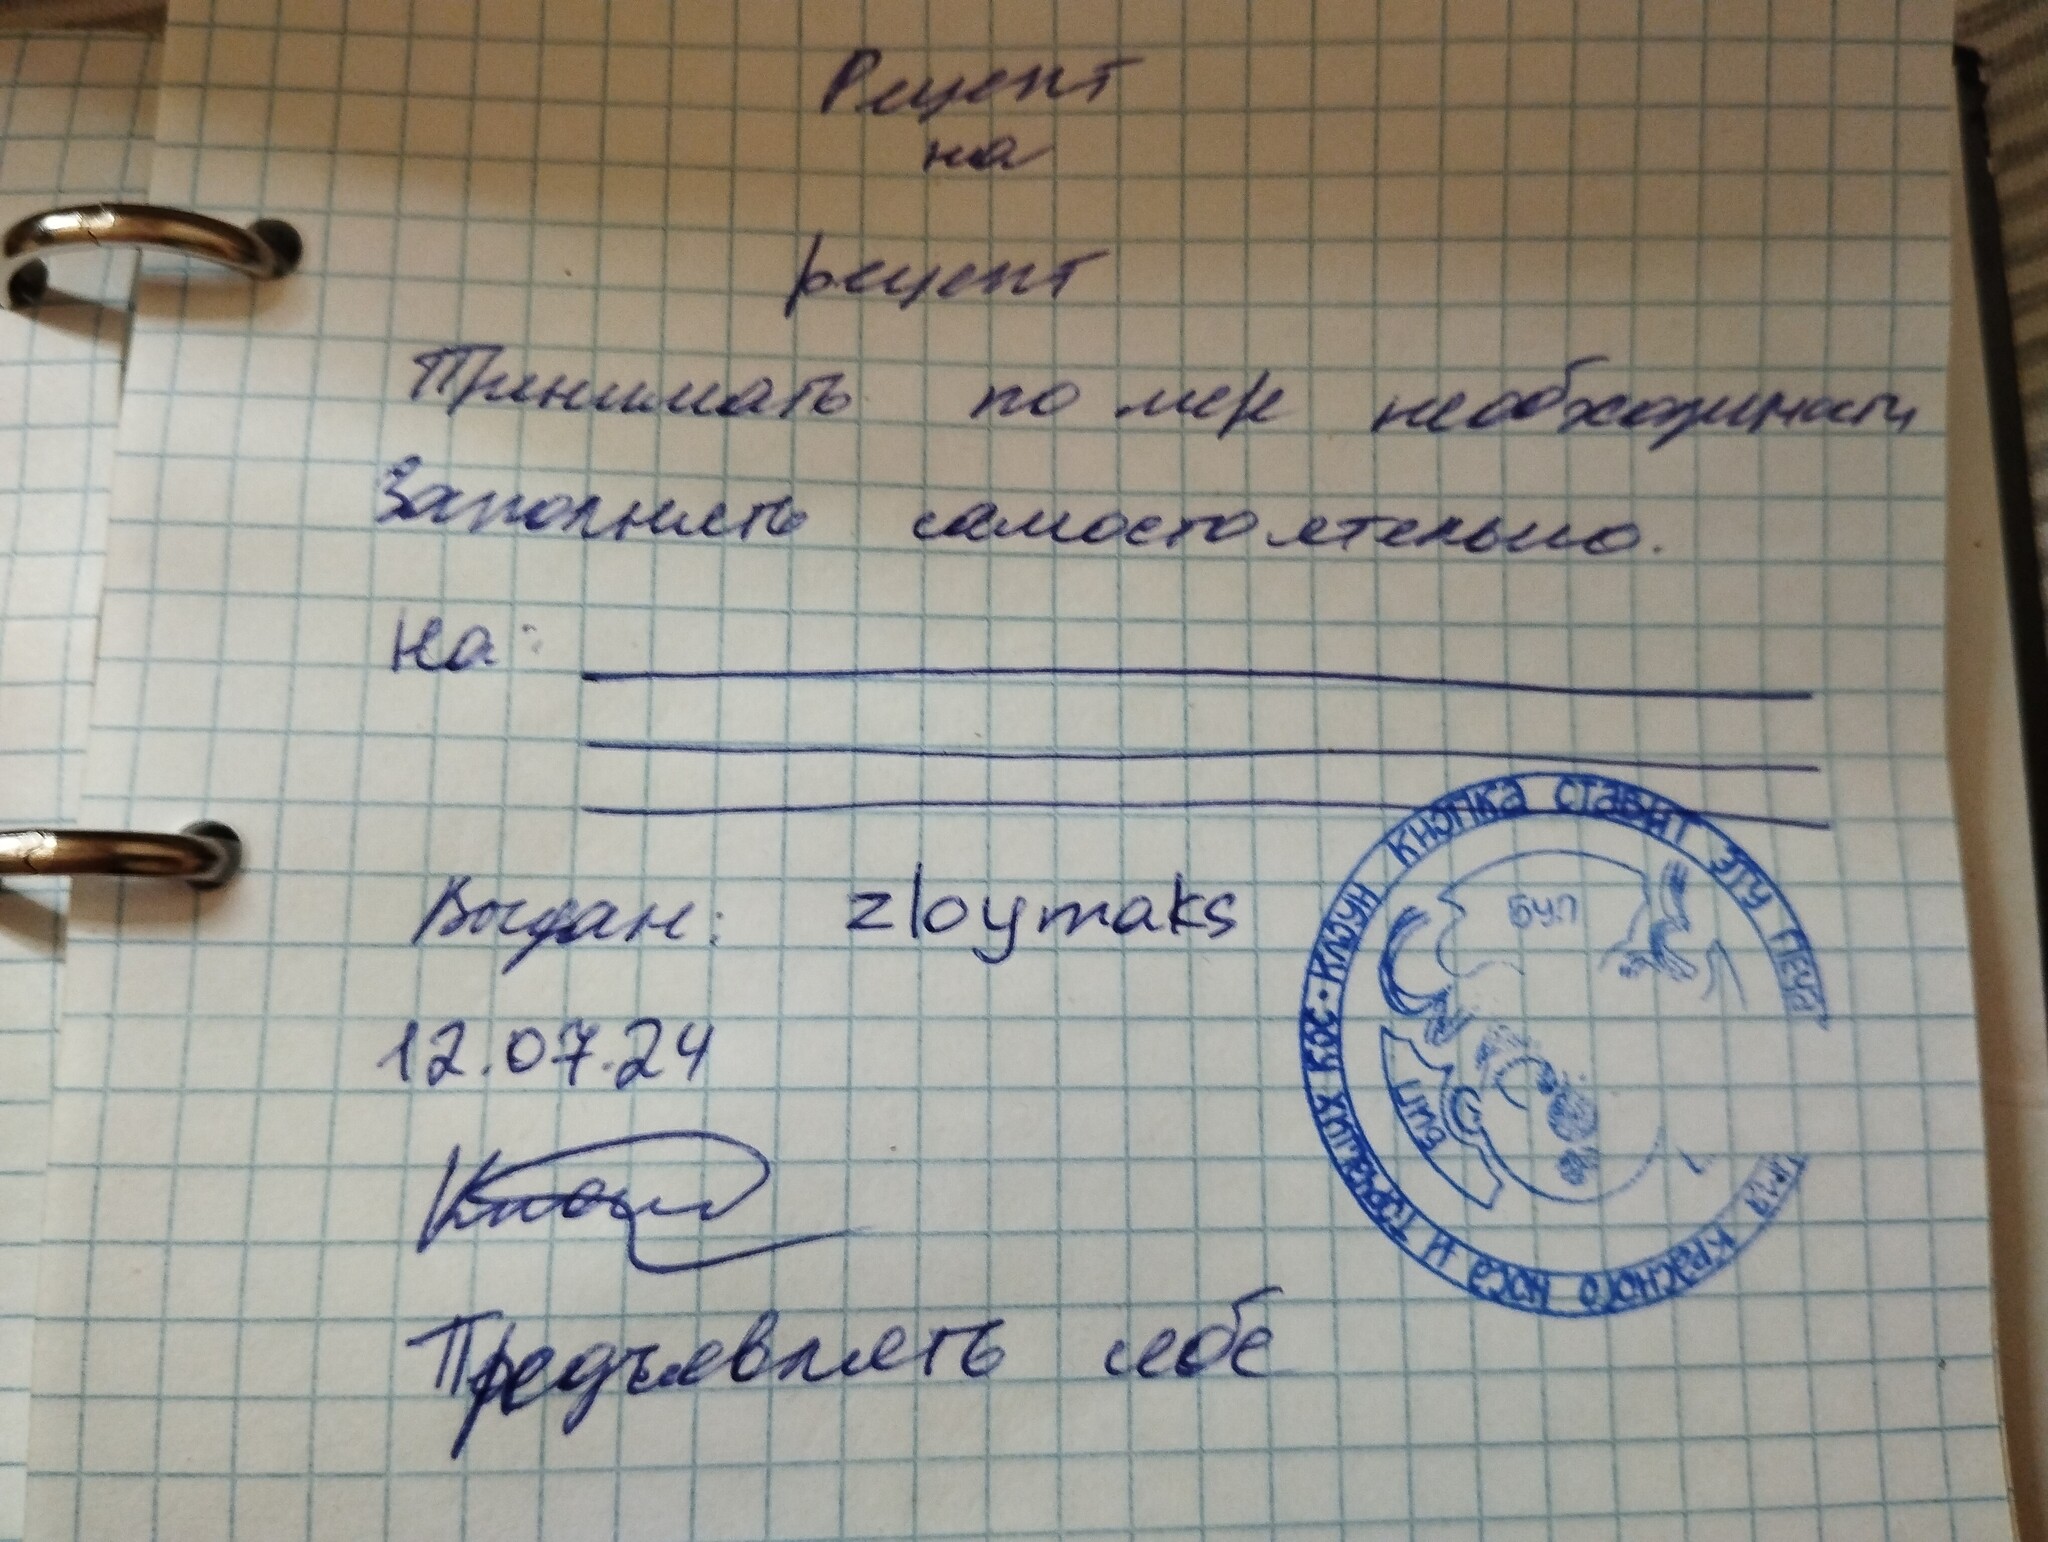 Рецепт
на
рецепт
Принимать по мере необходимости
Заполнять самостоятельно.
на:
Выдан: zloymaks
12.07.24
Предъявлять себе
КЛОУН КНОПКА СТАВИТ ЭТУ ПЕЧА
КРАСНОГО НОСА И ТОРЧАЩИХ КОС •
БУЛ
БИП